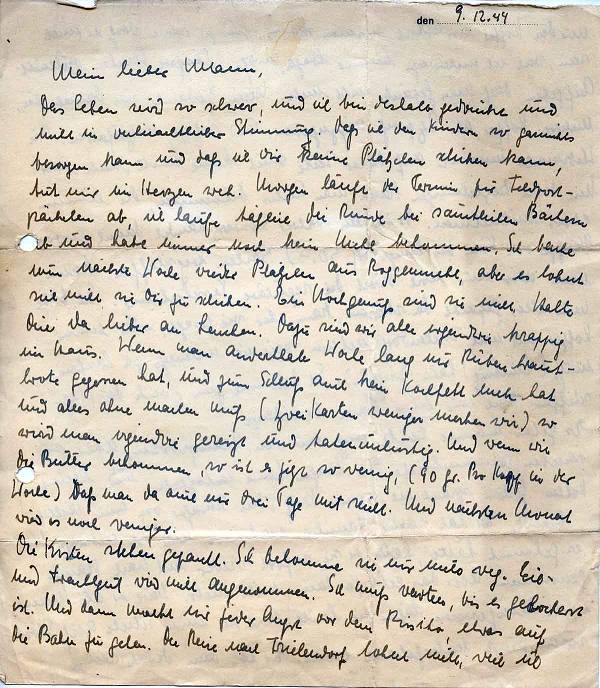 den 9.12.44
Mein lieber Mann,
Das Leben wird so schwer, und ich bin deshalb gedrückt und
nicht in weihnachtlicher Stimmung. Daß ich den Kindern so garnichts
besorgen kann und daß ich Dir keine Plätzchen schicken kann,
tut mir im Herzen weh. Morgen läuft der Termin für Feldpost-
päckchen ab, ich laufe täglich die Runde bei sämtlichen Bäckern
ab und habe immer noch kein Mehl bekommen. Ich backe
nun nächste Woche wieder Plätzchen aus Roggenmehl, aber es lohnt
sich nicht sie Dir zu schicken. Ein Hochgenuß sind sie nicht. Halte
Dich da lieber an Lenchen. Dazu sind wir alle irgendwie
im Haus. Wenn man anderthalb Woche lang nur Rübenkraut-
brote gegessen hat, und zum Schluß auch kein Kochfett mehr hat
und alles ohne machen muß (zwei Karten weniger merken wir) so
wird man irgendwie gereizt und Und wenn wir
die Butter bekommen, so ist es jetzt so wenig, (90 gr. Pro Kopf in der
Woche) daß man da auch nur drei Tage mit reicht. Und nächsten Monat
wird es noch weniger.
Die Kisten stehen gepackt. Ich bekomme sie nur nicht weg. Eil-
und Frachtgut wird nicht angenommen. Ich muß warten, bis es gelockert
ist. Und dann macht mir jeder Angst vor dem Risiko, etwas auf
die Bahn zu geben. Die Reise nach lohnt nicht, weil ich